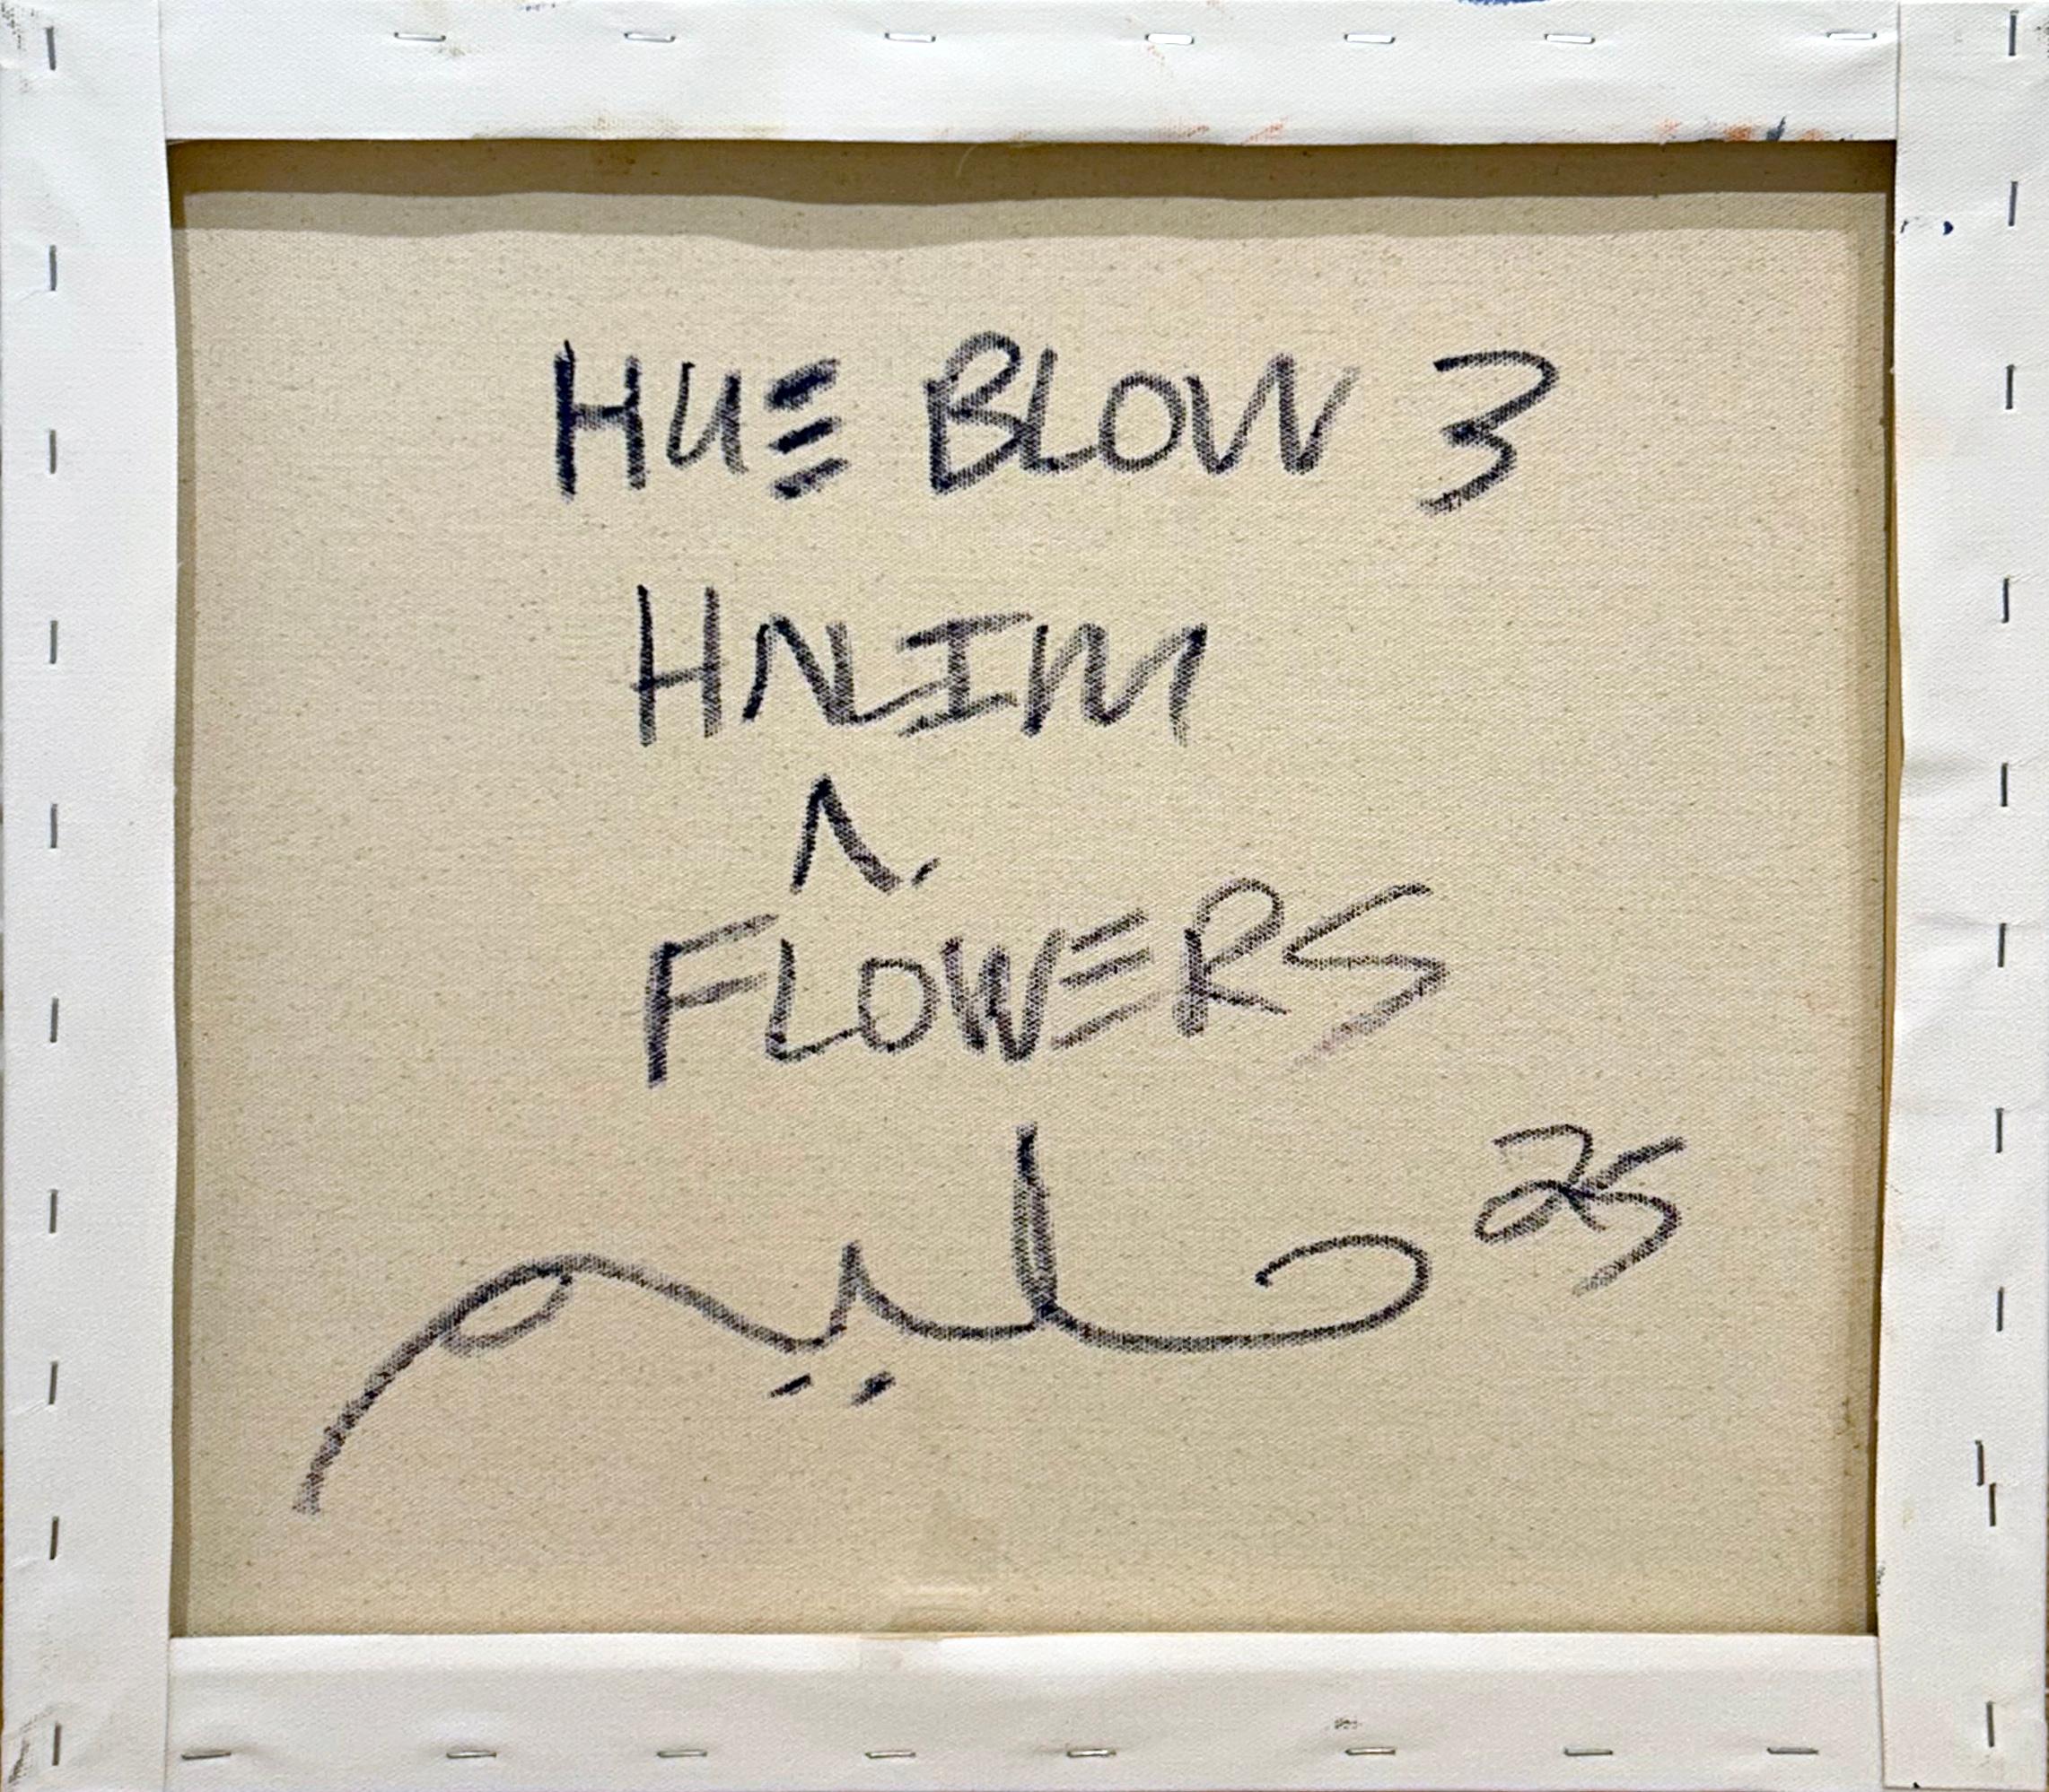 HUE BLOW 3
HALIM
A.
FLOWERS
حليم 25